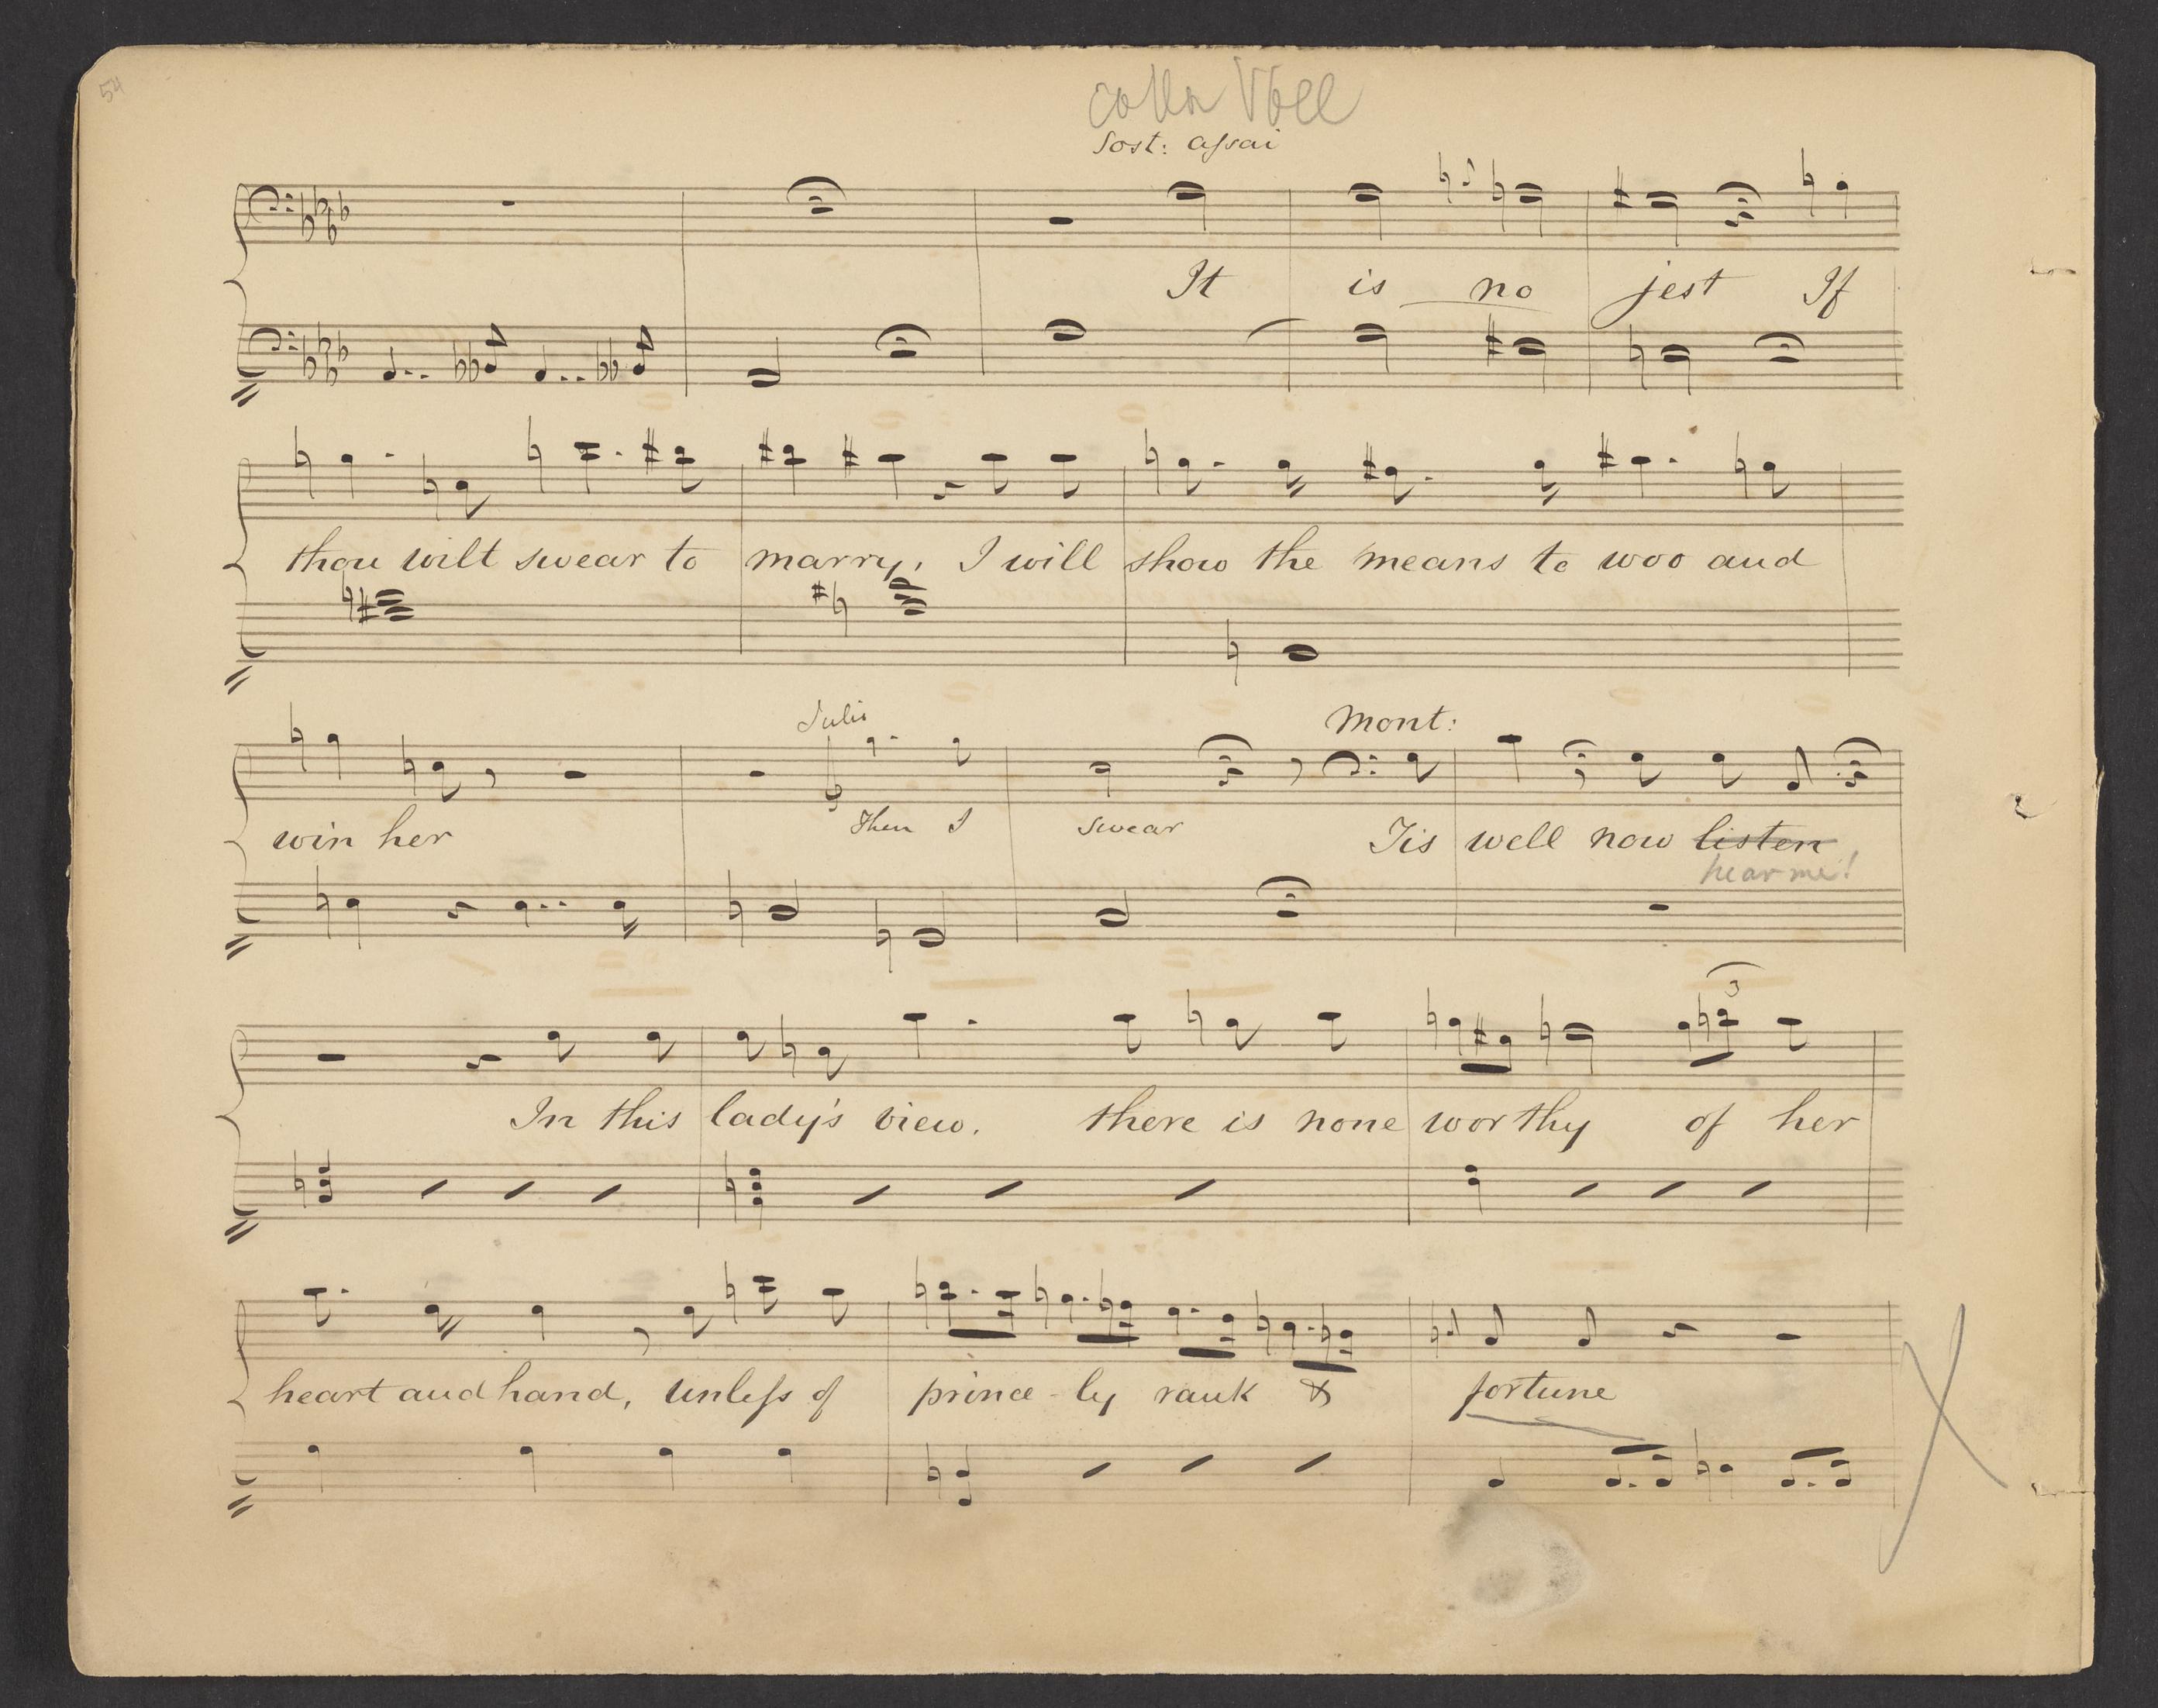 54
colla
Sost: assai
It is no jest If
thou wilt swear to marry, I will show the means to woo and
Julio
Mont:
win her then I swear Tis well now listen
hear me!
In this lady's view. there is none worthy of her
3
heart and hand, unless of prince-ly rank & fortune